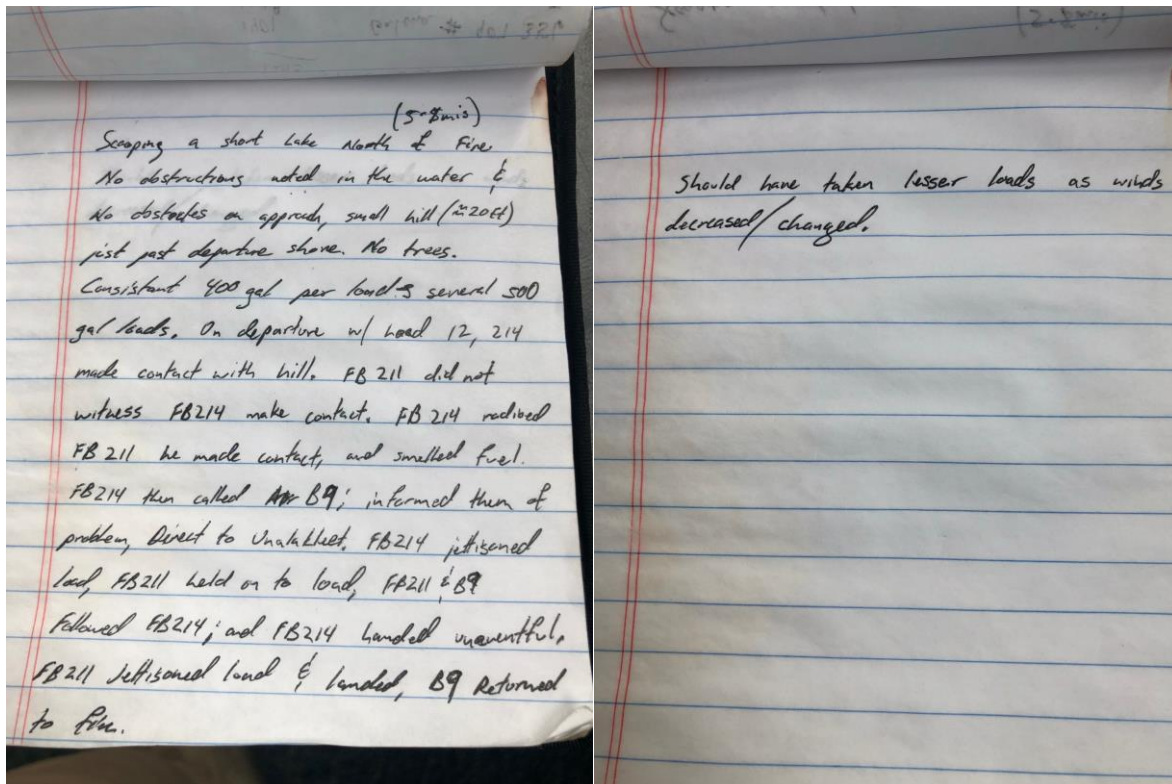 (5-8mis)
Scooping a short Lake North of Fire
No obstructions noted in the water &
No obstacles on approach, small hill (≈20ft)
just past departure shore. No trees.
Consistant 400 gal per load & several 500
gal loads. On departure w/ Load 12, 214
made contact with hill. FB 211 did not
witness FB214 make contact. FB 214 radioed
FB 211 he made contact, and smelled fuel.
FB214 then called B9; informed them of
problem, Direct to Unalakleet. FB214 jettisoned
load, FB211 held on to load, FB211 & B9
Followed FB214; and FB214 landed unaventful.
FB211 Jettisoned load & landed, B9 Returned
to fire.
Should have taken lesser loads as winds
decreased/changed.